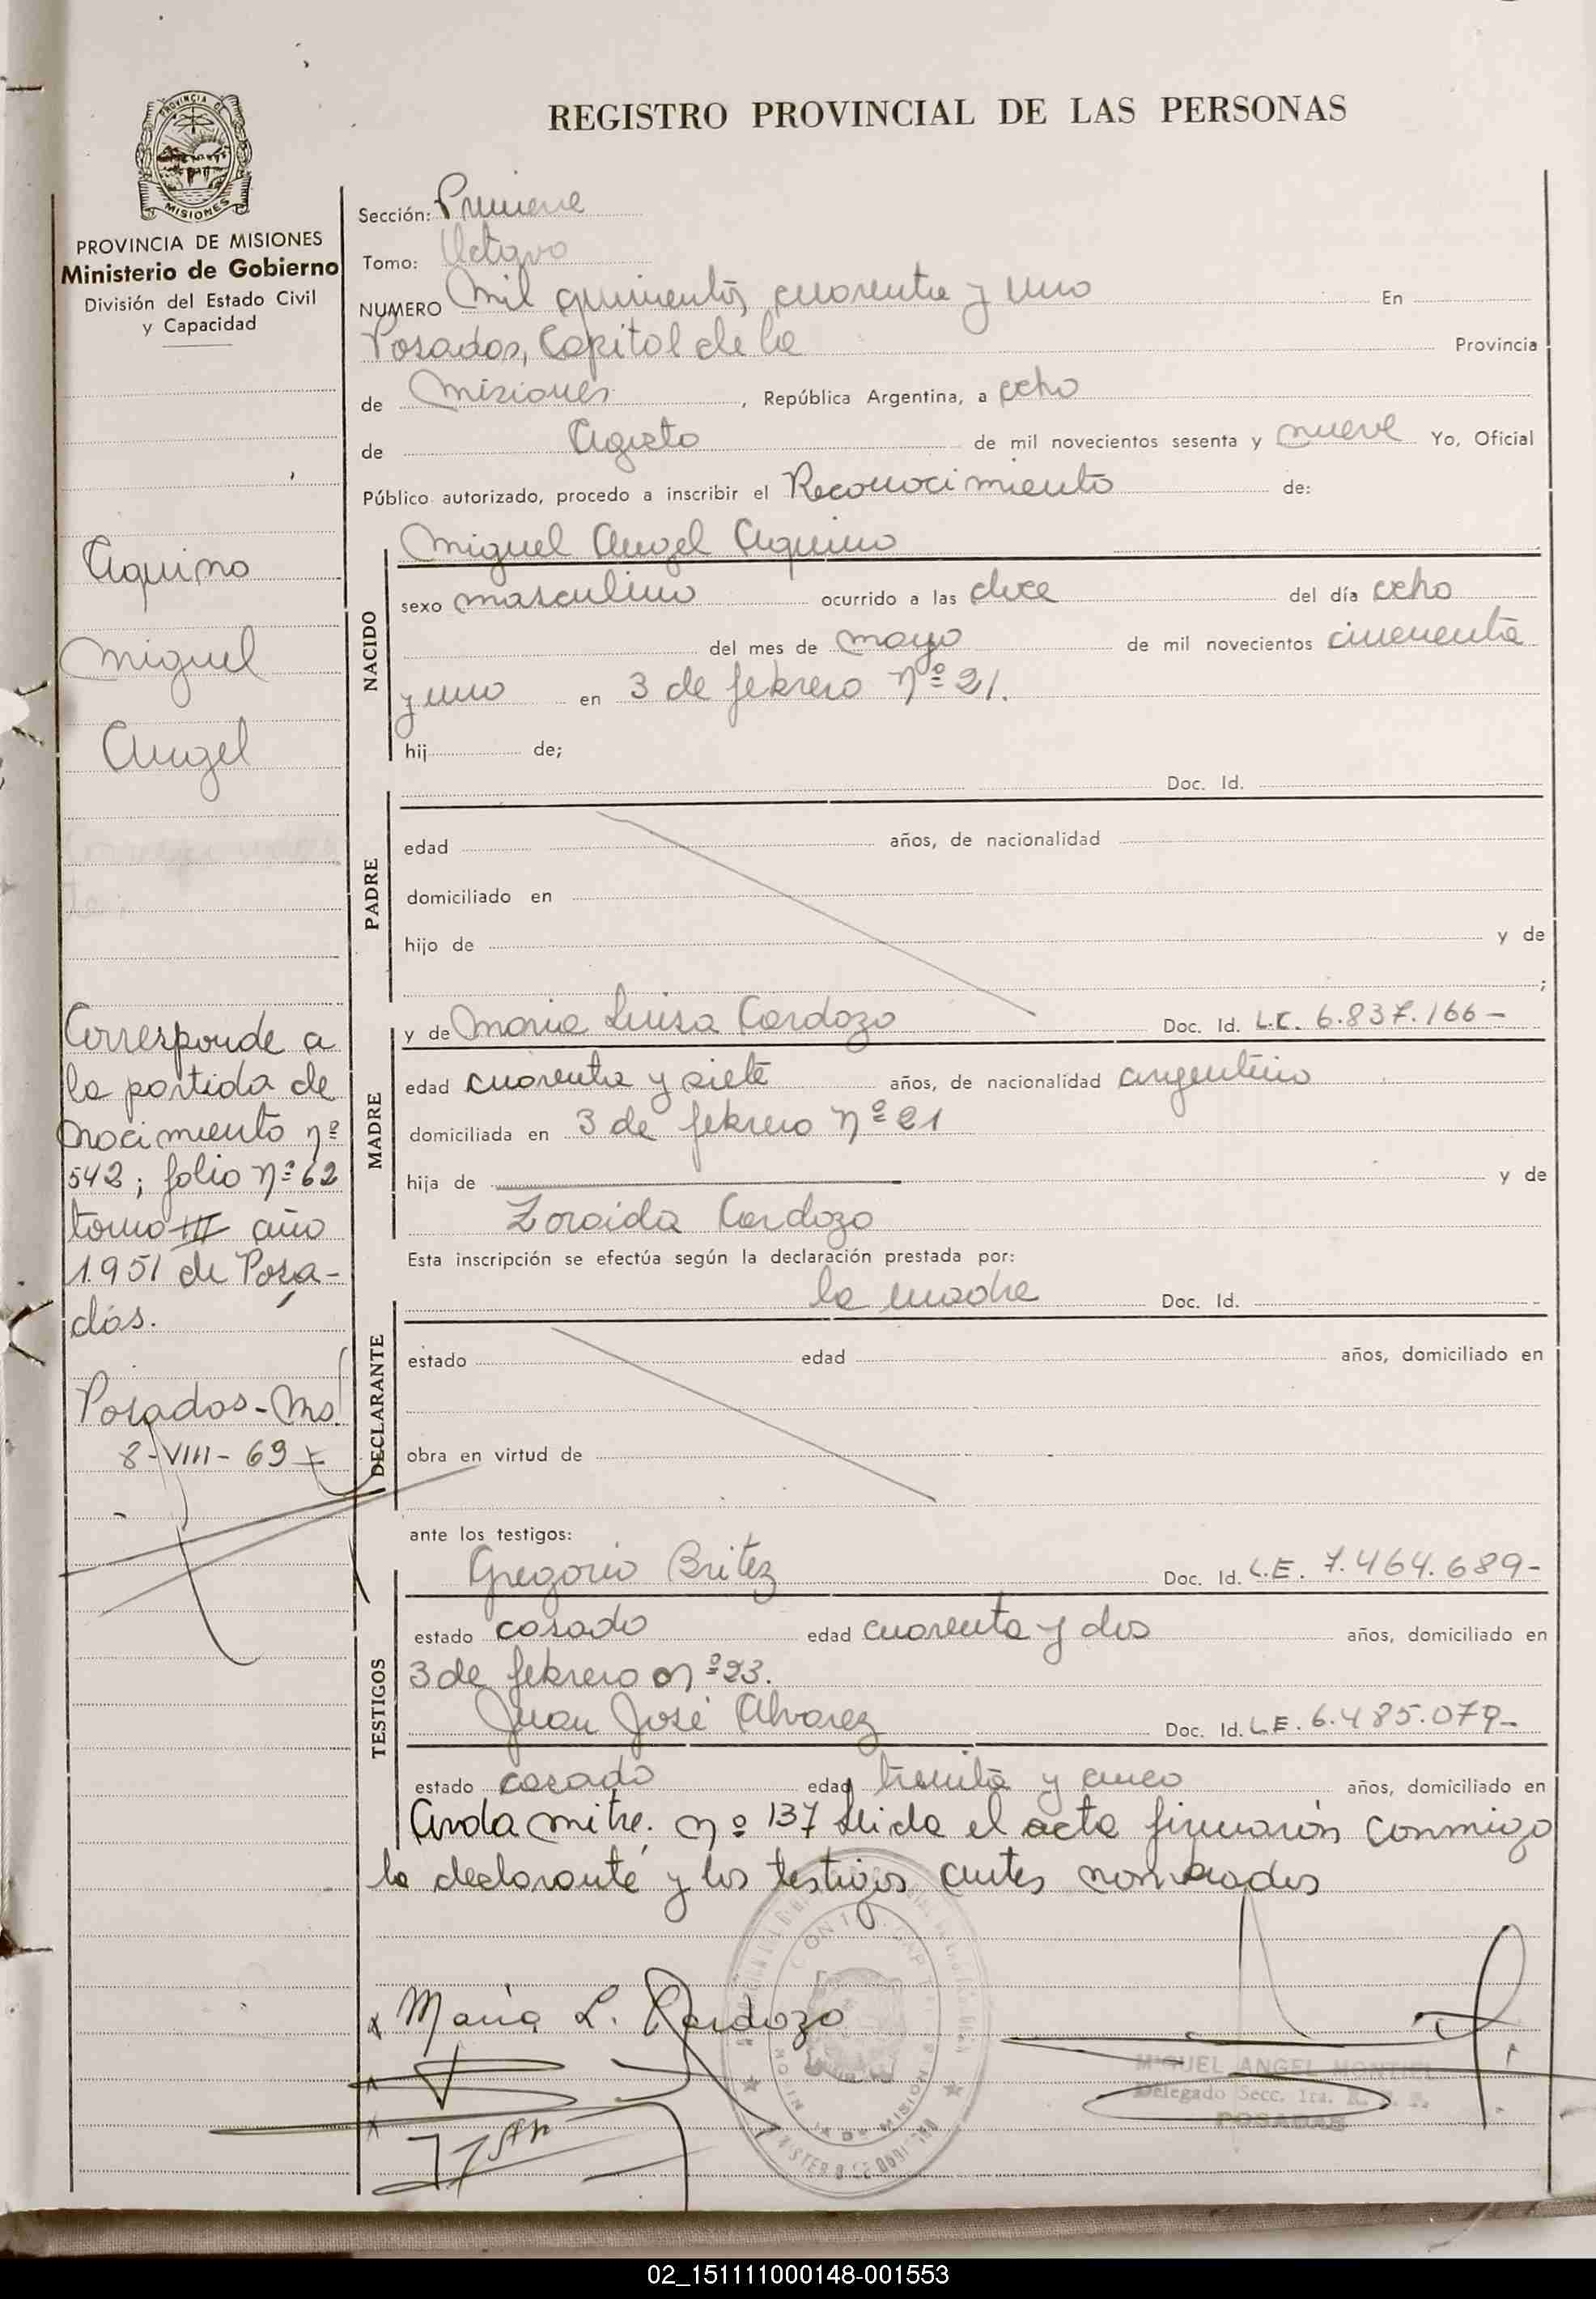 REGISTRO PROVINCIAL DE LAS PERSONAS
PROVINCIA DE MISIONES
PROVINCIA DE MISIONES
Ministerio de Gobierno
División del Estado Civil
y Capacidad
Aquino
Miguel
Angel
Corresponde a
la partida de
nacimiento nº
542; folio nº 62
tomo III año
1.951 de Posa-
das.
Posadas - Ms.
8-VIII-69
Sección: Primera
Tomo: Octavo
NUMERO Mil quinientos cuarenta y uno En
Posadas, Capital de la Provincia
de Misiones, República Argentina, a ocho
de Agosto de mil novecientos sesenta y nueve Yo, Oficial
Público autorizado, procedo a inscribir el Reconocimiento de:
NACIDO
Miguel Angel Aquino
sexo masculino ocurrido a las doce del día ocho
del mes de mayo de mil novecientos cincuenta
y uno en 3 de febrero nº 21.
hij de;
PADRE
Doc. Id.
edad años, de nacionalidad
domiciliado en
hijo de y de
;
MADRE
y de Maria Luisa Cardozo Doc. Id. L.C. 6.837.166-
edad cuarenta y siete años, de nacionalidad argentina
domiciliada en 3 de febrero nº 21
hija de y de
Zoraida Cardozo
Esta inscripción se efectúa según la declaración prestada por:
DECLARANTE
la madre Doc. Id.
estado edad años, domiciliado en
obra en virtud de
ante los testigos:
TESTIGOS
Gregorio Britez Doc. Id. L.E. 7.464.689-
estado casado edad cuarenta y dos años, domiciliado en
3 de febrero nº 23.
Juan José Alvarez Doc. Id. L.E. 6.485.079-
estado casado edad treinta y cinco años, domiciliado en
Avda mitre. nº 137 Leida el acta firmarón conmigo
la declarante y los testigos antes nombrados
Maria L. Cardozo
MIGUEL ANGEL MONTIEL
Delegado Secc. 1ra. R. P. P.
POSADAS
02_151111000148-001553